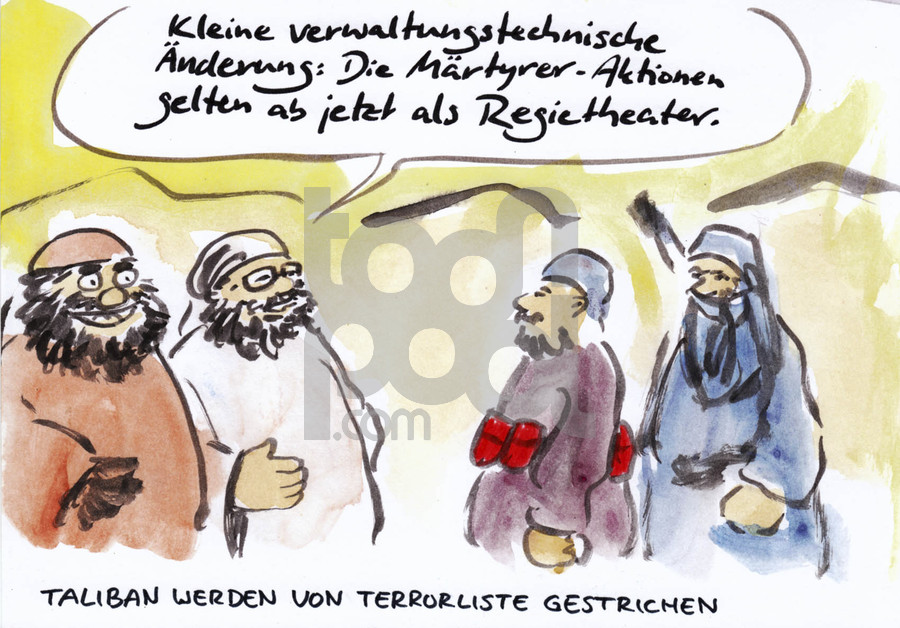 Kleine verwaltungstechnische
Änderung: Die Märtyrer-Aktionen
gelten ab jetzt als Regietheater.
toon
pool
.com
TALIBAN WERDEN VON TERRORLISTE GESTRICHEN